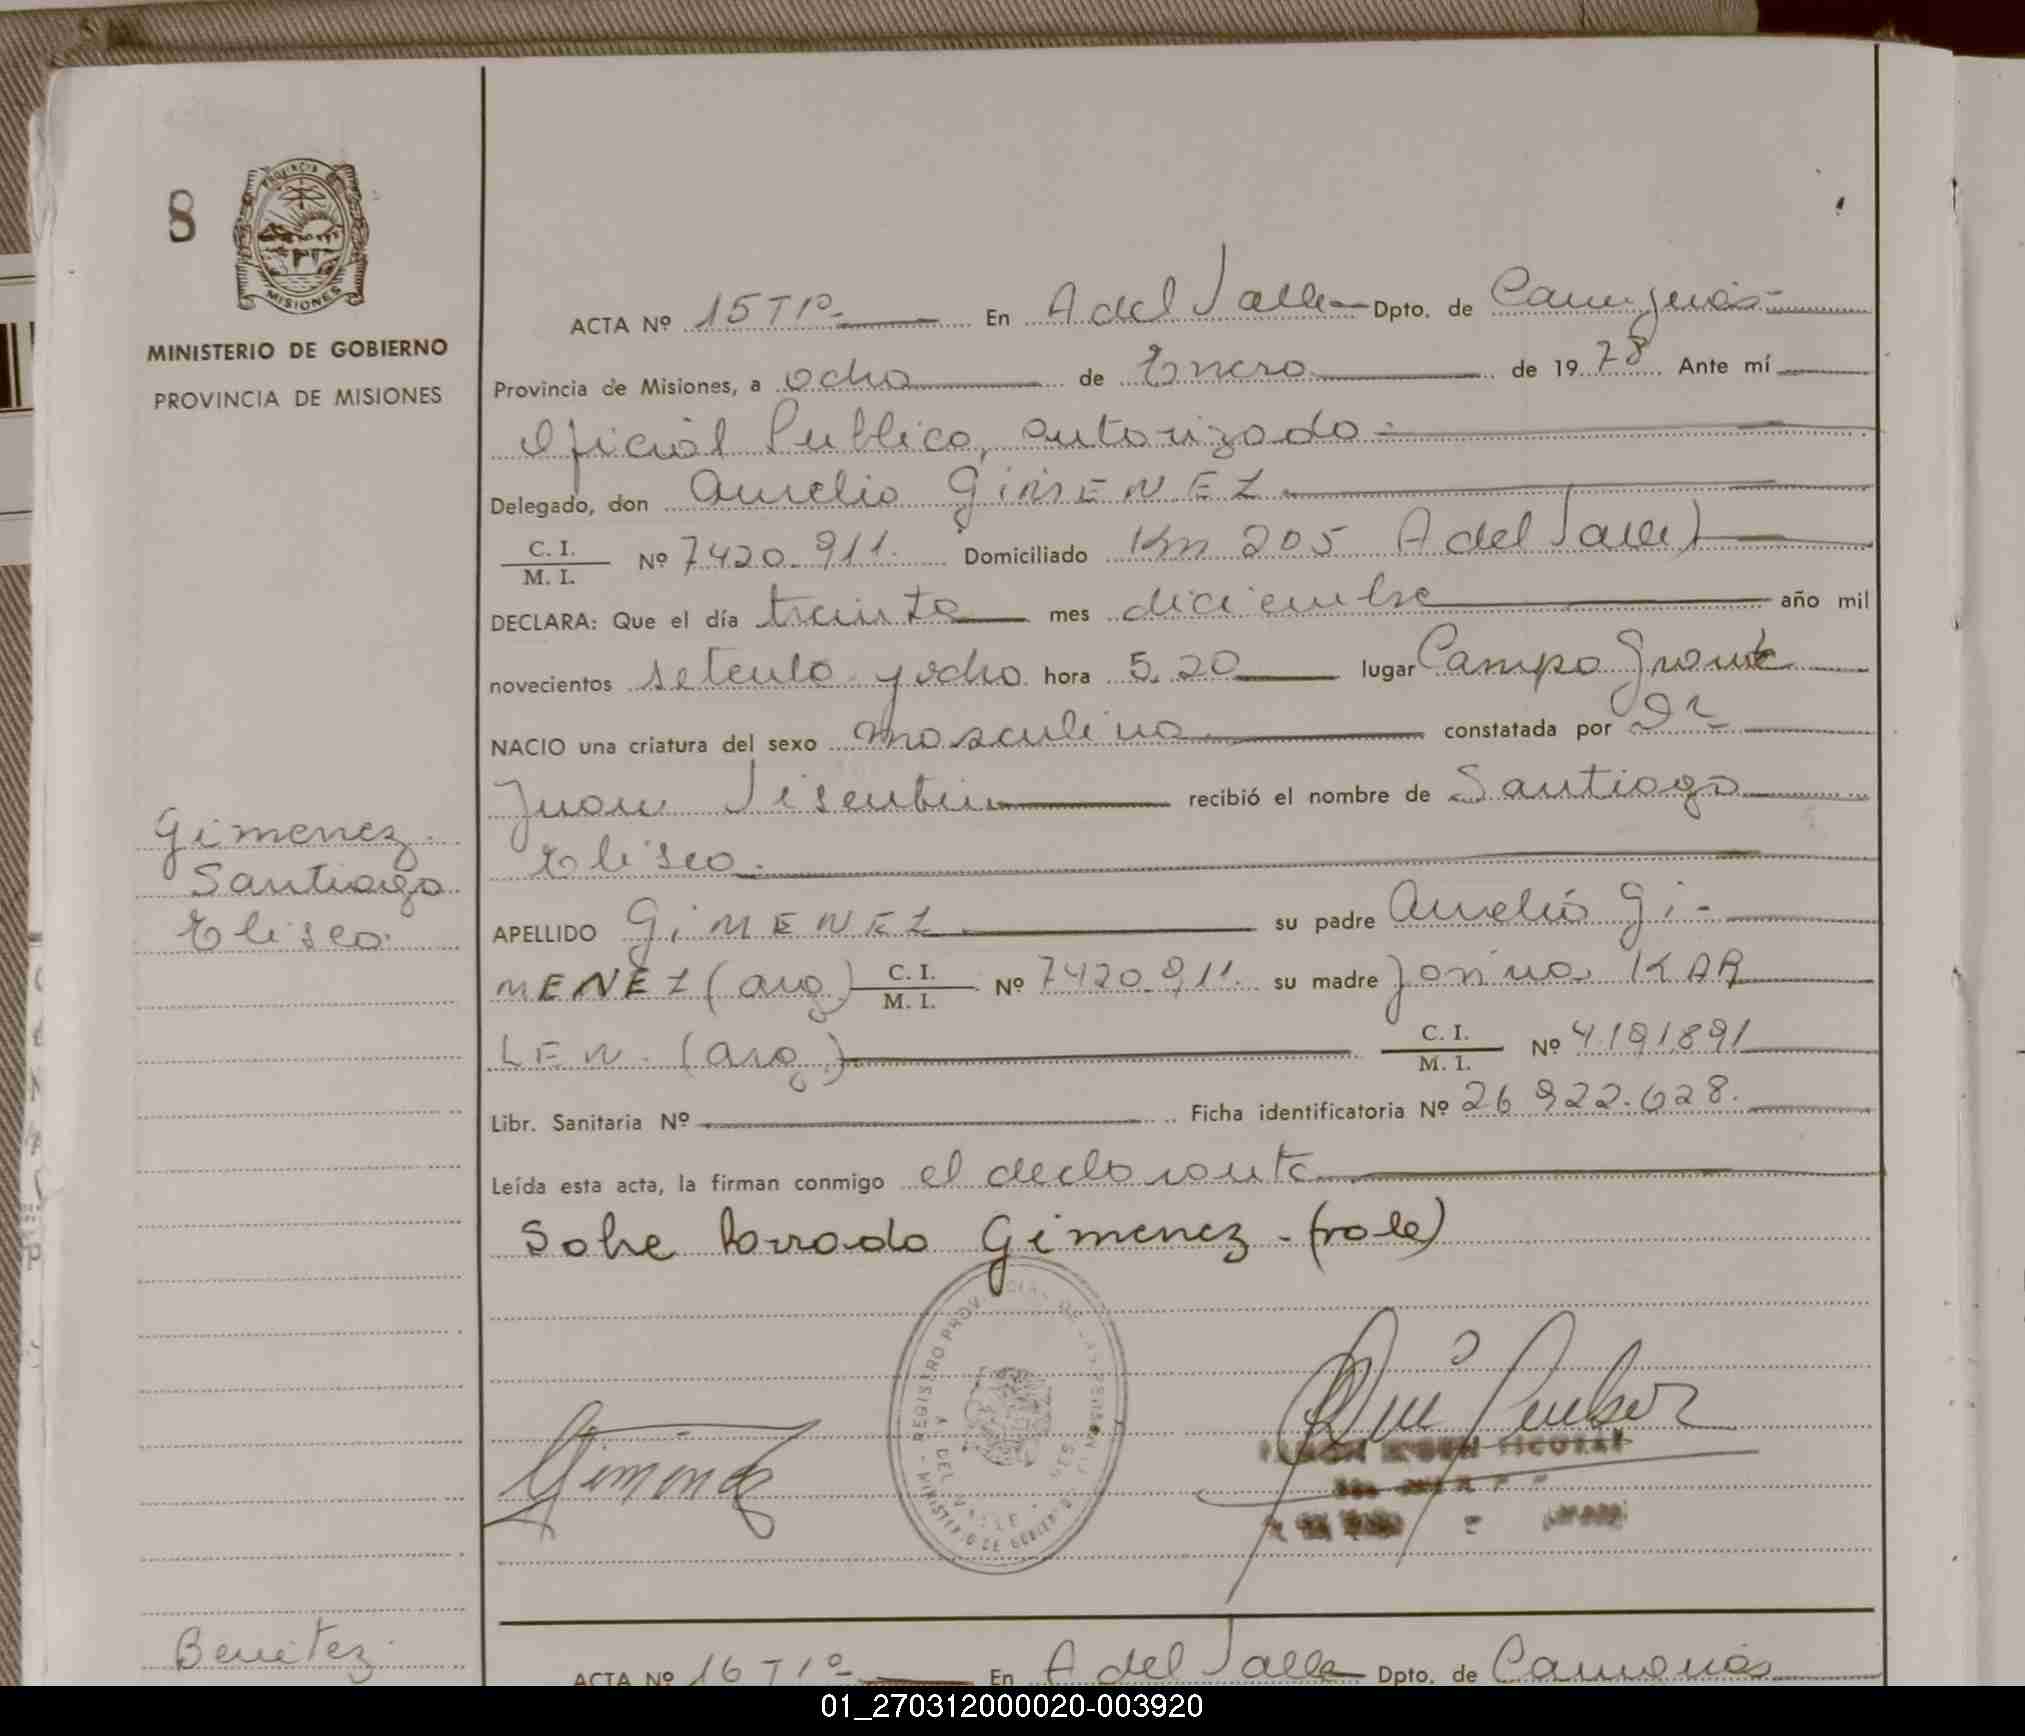 8
PROVINCIA
MISIONES
MINISTERIO DE GOBIERNO
PROVINCIA DE MISIONES
ACTA Nº 15 T1º En A del Valle Dpto. de
Provincia de Misiones, a ocho de Enero de 1978 Ante mí
Oficial Publico, autorizado
Delegado, don Aurelio GiMENEZ
C. I.
M. I. Nº 7420.911. Domiciliado Km 205 A del Valle)
DECLARA: Que el día treinta mes diciembre año mil
novecientos setenta y ocho hora 5.20 lugar Campo Grande
NACIO una criatura del sexo masculino constatada por Dr
Juan recibió el nombre de Santiago
Eliseo.
Gimenez
Santiago
Eliseo.
APELLIDO GiMENEZ su padre Aurelio Gi-
MENEZ (arg) C. I.
M. I. Nº 7420.911. su madre KAR
LEN. (arg.) C. I.
M. I. Nº 4.191.891
Libr. Sanitaria Nº Ficha identificatoria Nº 26 922.628.
Leída esta acta, la firman conmigo el declarante
Sobre borrado Gimenez - (vale)
REGISTRO PROVINCIAL DE LAS PERSONAS
A DEL VALLE
MINISTERIO DE GOBIERNO
Benitez
ACTA Nº 16 T1º En A del Valle Dpto. de
01_270312000020-003920